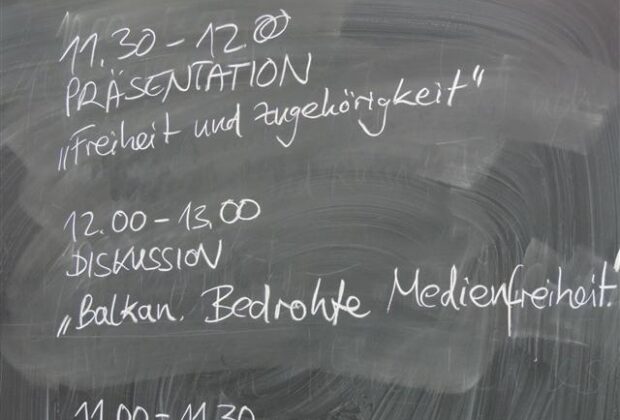 11.30 – 12.00
PRÄSENTATION
„Freiheit und Zugehörigkeit“
12.00 – 13.00
DISKUSSION
„Balkan. Bedrohte Medienfreiheit.“
11.00 – 11.30